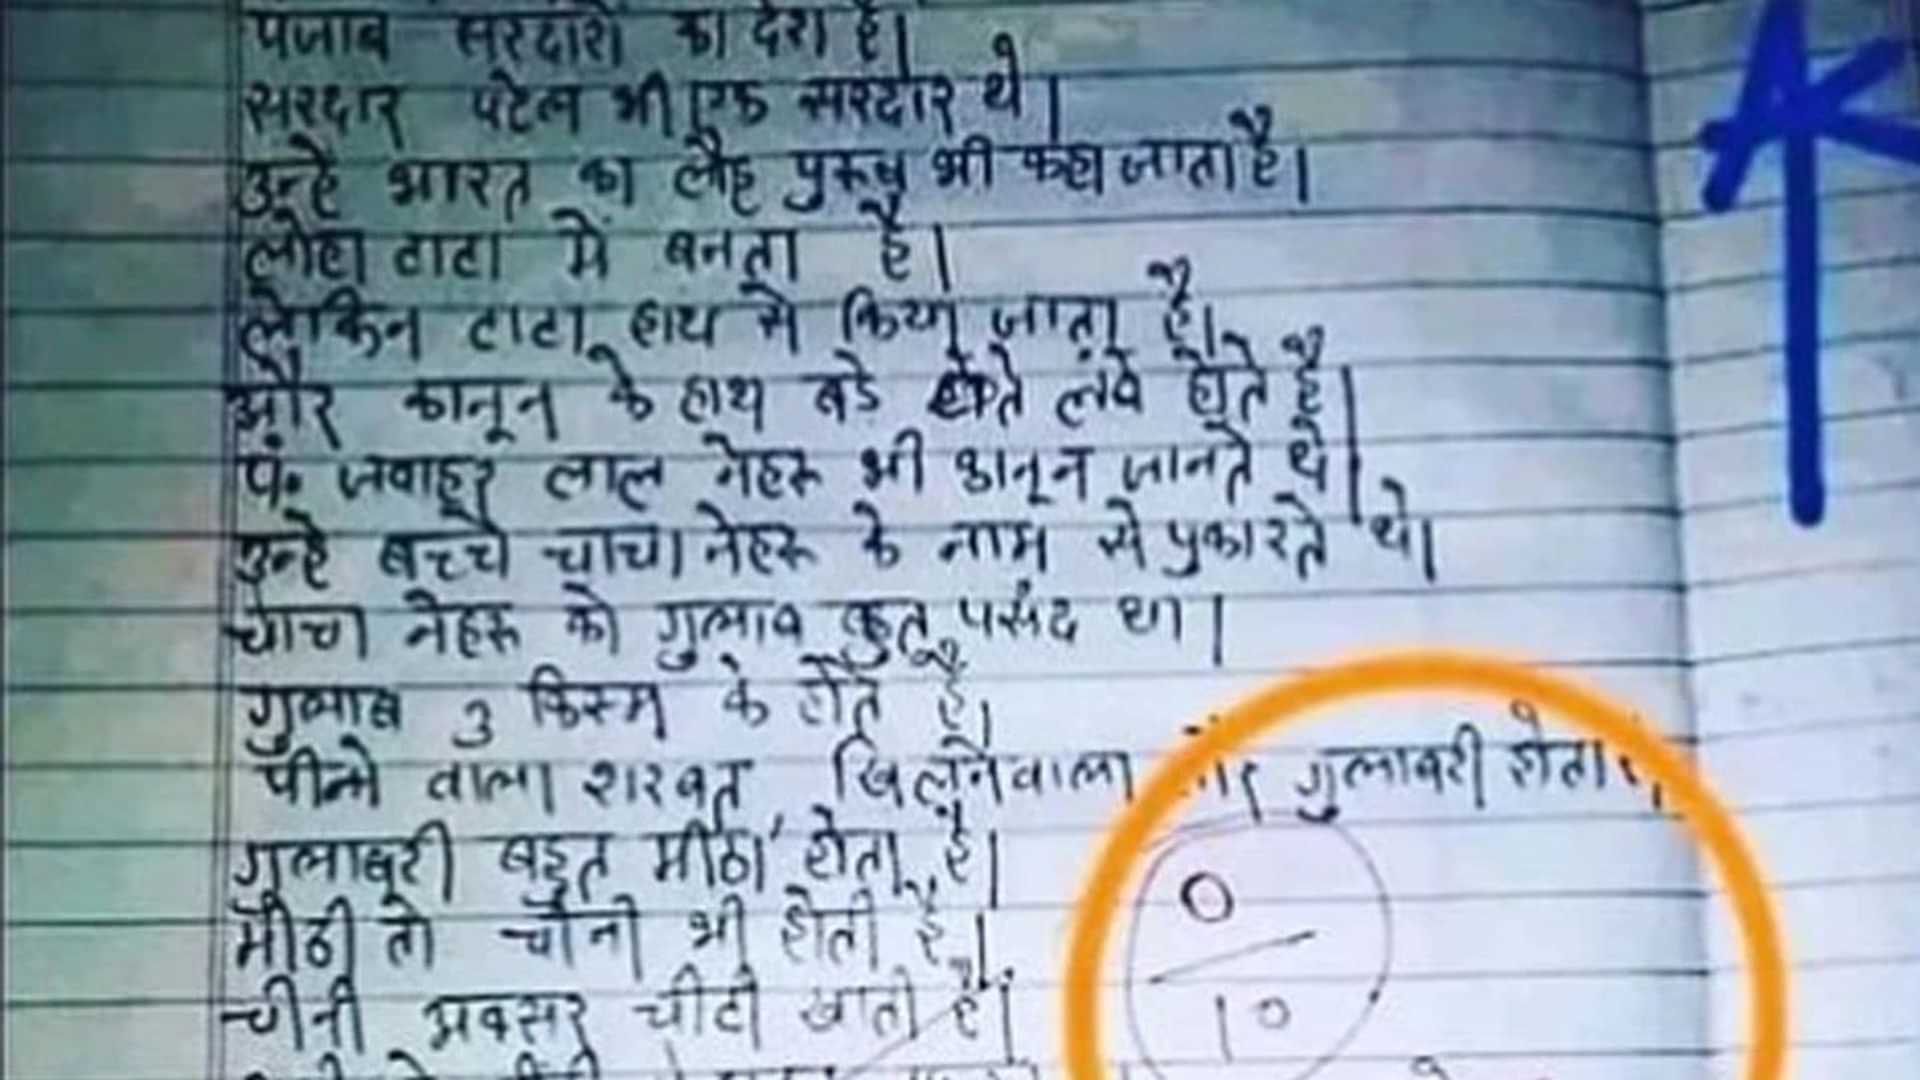 पंजाब सरदारों का देश है।
सरदार पटेल भी एक सरदार थे।
उन्हे भारत का लौह पुरूष भी कहा जाता है।
लोहा टाटा में बनता है।
लेकिन टाटा हाथ से किया जाता है।
और कानून के हाथ बडे लंवे होते है।
पं. जवाहर लाल नेहरू भी कानून जानते थे।
उन्हे बच्चे चाचा नेहरू के नाम से पुकारते थे।
चाचा नेहरू को गुलाव बहुत पसंद था।
गुलाब 3 किस्म के होते है।
पीने वाला शरवत, खिलनेवाला और गुलावरी होता
गुलाबरी बहुत मीठा होता है।
मीठी तो चीनी भी होती है।
चीनी अक्सर चीटी खाती है।
0
10